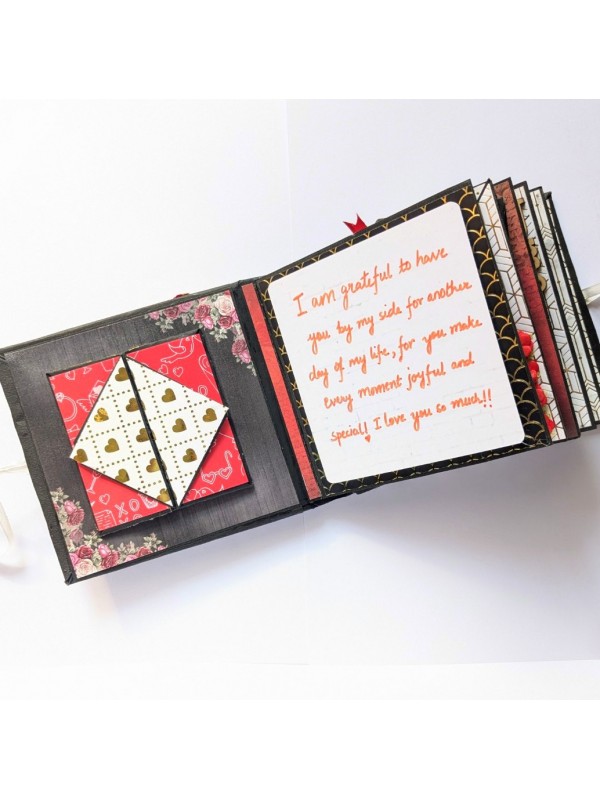 I am grateful to have
you by my side for another
day of my life, for you make
every moment joyful and
special! I love you so much!!
XO